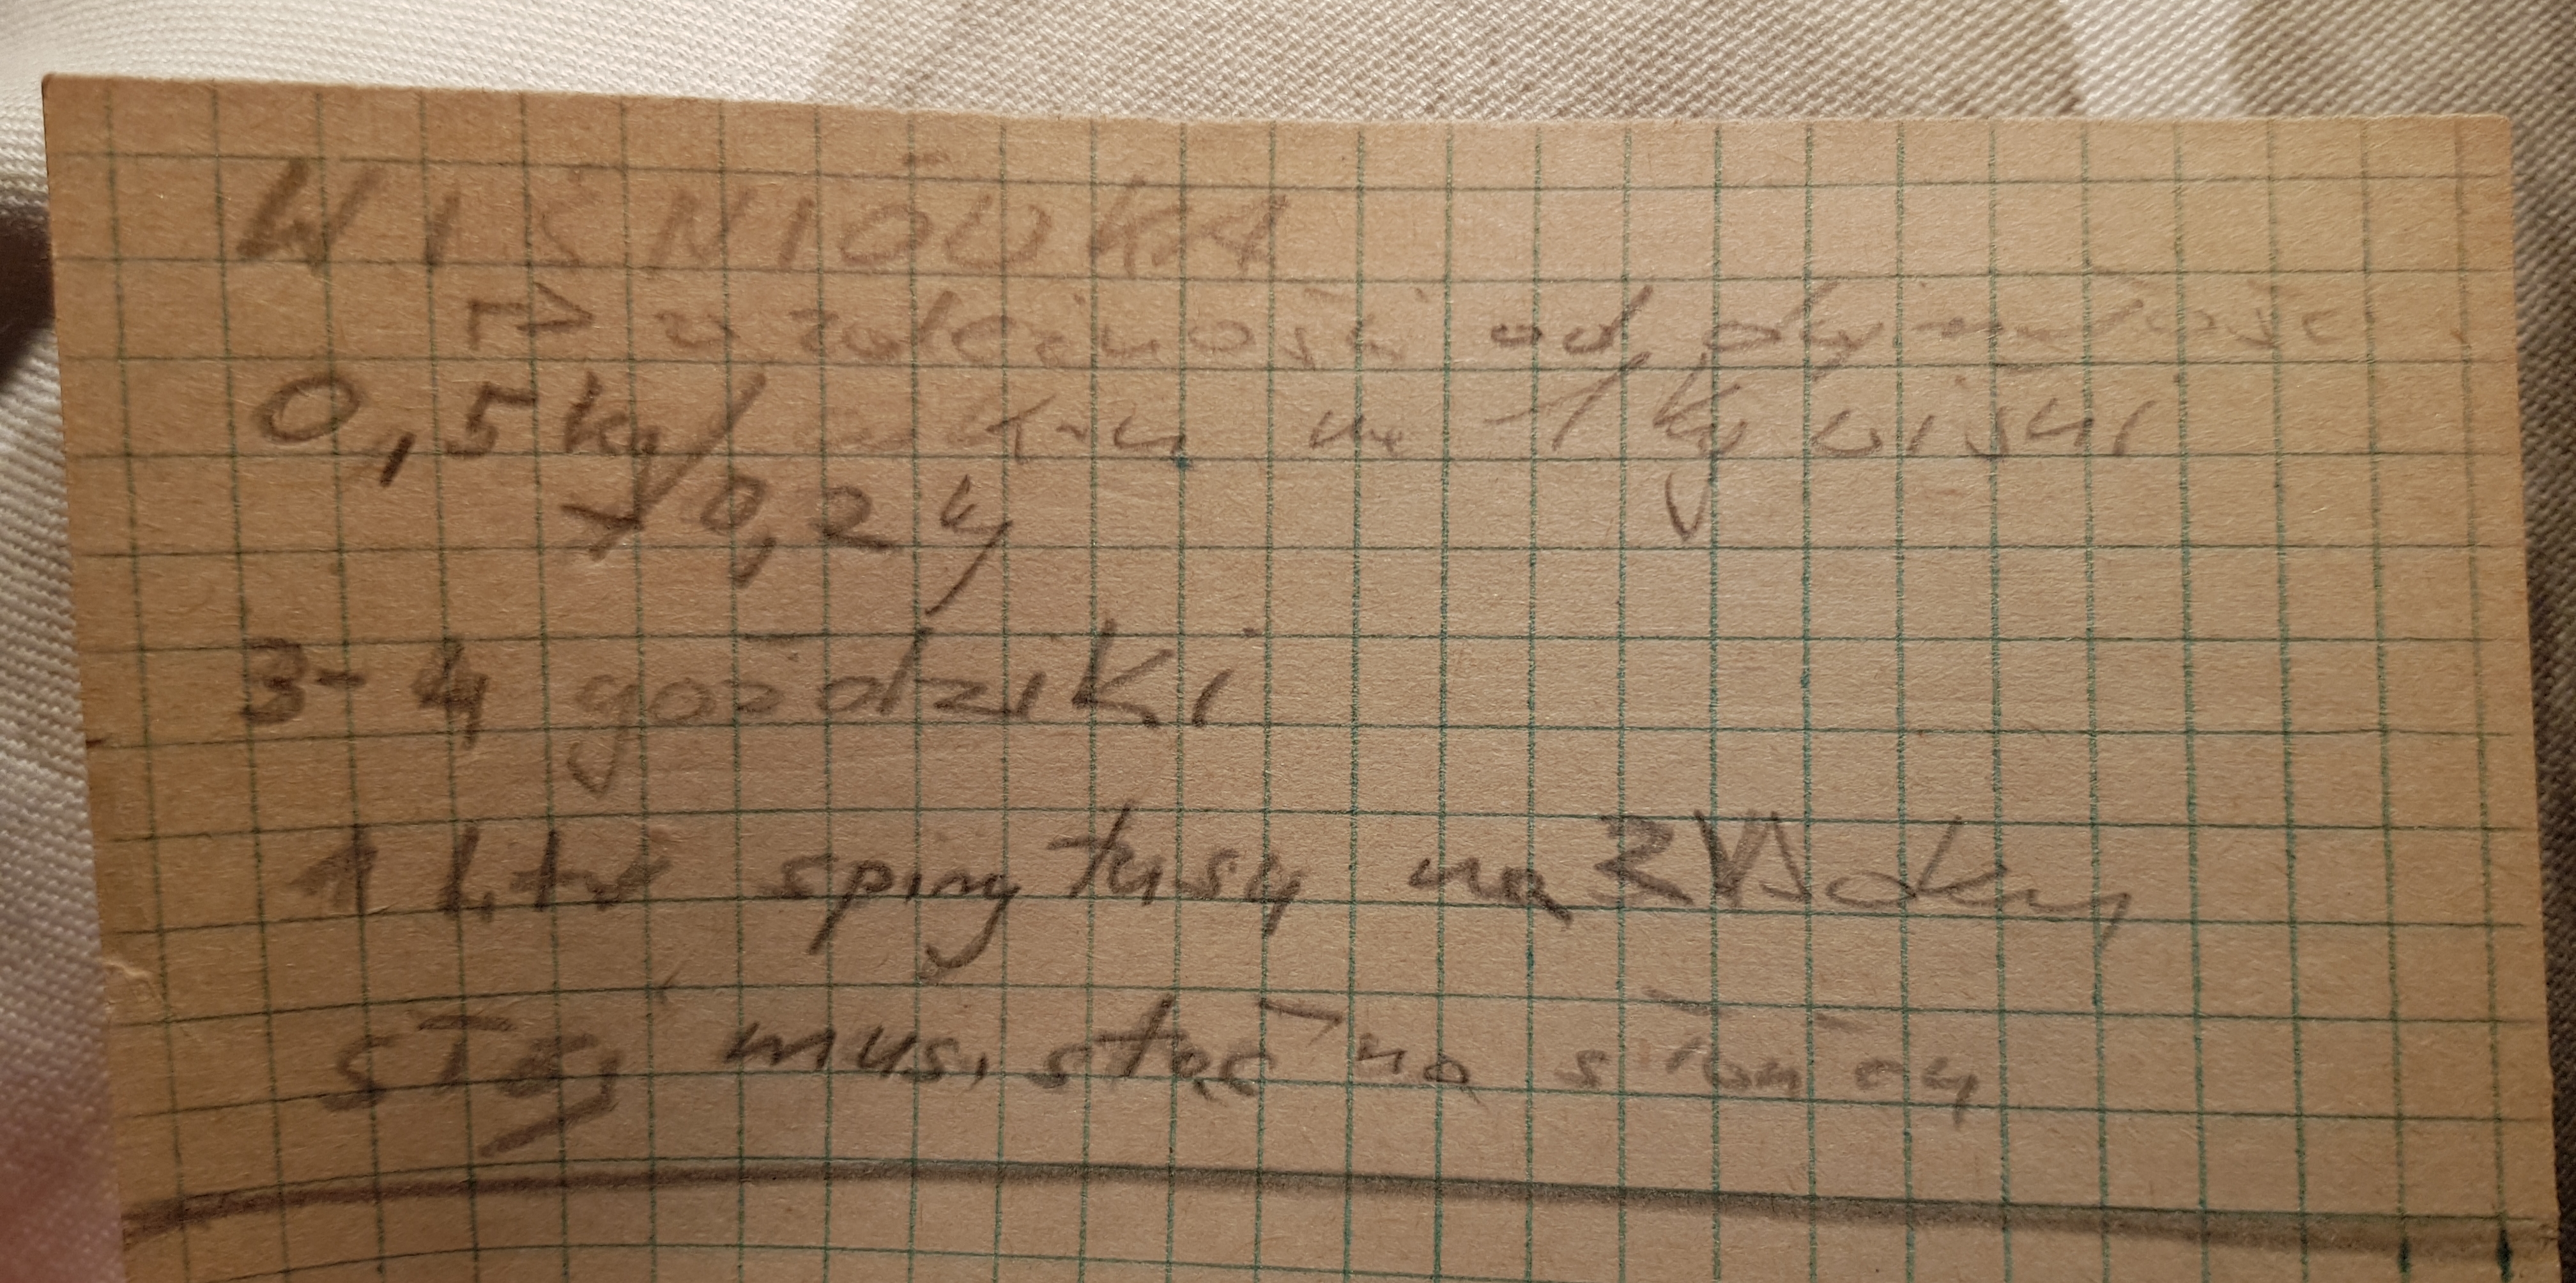 WIŚNIÓWKA
→ w zależności od
0,5 kg / cukru na 1 kg wiśni
→ 0,2 kg
3-4 goździki
1 litr spirytusu na 2 Wódky
słój musi stać na słońcu